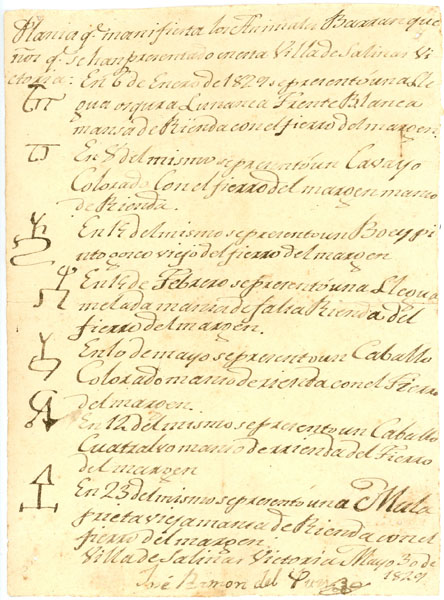 Planta q.e manifiesta los Animales Barran que
ños q.e se han presentado en esta Villa de Salinas Vi
ctoria: En 6 de Enero de 1829 se presentó una Lle
gua osgura Lunanca Frente Blanca
mansa de Rienda con el fierro del margen.
En 8 del mismo se presentó un Cavayo
Colorado Con el fierro del margen manso
de Rienda.
En 15 del mismo se presentó un Bueypi
nto osnco viejo del fierro del margen
En 15 de Febrero se presentó una Llegua
melada mansa de falsa Rienda del
fierro del margen.
En 10 de mayo se presento un Caballo
Colorado manso de rienda con el Fierro
del margen.
En 12 del mismo se presento un Caballo
Cuatralvo manso de rrienda del Fierro
del margen
En 23 del mismo se presentó una Mula
prieta vieja mansa de Rienda con el
fierro del margen.
Villa de Salinas Victoria Mayo 30 de
1829.
José Ramon del